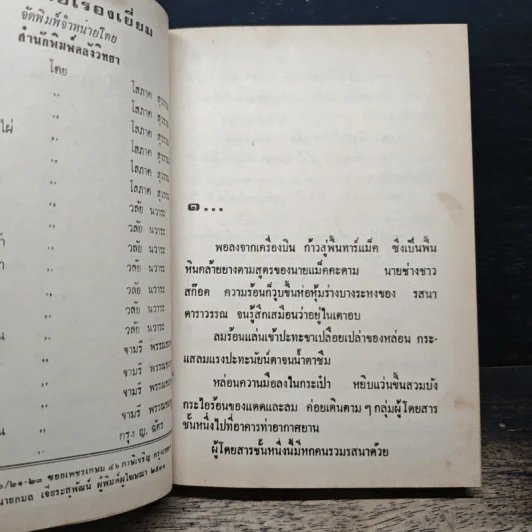 เรื่องเยี่ยม
จัดพิมพ์จำหน่ายโดย
สำนักพิมพ์คลังวิทยา
โดย โสภาค สุวรรณ
" โสภาค สุวรรณ
ไผ่ " โสภาค สุวรรณ
" โสภาค สุวรรณ
" โสภาค สุวรรณ
" วลัย นวาระ
" วลัย นวาระ
" วลัย นวาระ
" วลัย นวาระ
" วลัย นวาระ
" วลัย นวาระ
" จามรี พรรณ
" จามรี พรรณ
" จามรี พรรณ
" จามรี พรรณ
" จามรี พรรณ
" กรุง ญ. ฉัตร
/๒๑-๒๓ ซอยเพชรเกษม ๔๖ ภาษีเจริญ
นายกมล เจียระสุพัฒน์ ผู้พิมพ์ผู้โฆษณา
๑...
พอลงจากเครื่องบิน ก้าวสู่พื้นทาร์แม็ค ซึ่งเป็นพื้น
หินคล้ายยางตามสูตรของนายแม็คคะดาม นายช่างชาว
สก๊อต ความร้อนก็วูบขึ้นห่อหุ้มร่างบางระหงของ รสนา
ดาราวรรณ จนรู้สึกเสมือนว่าอยู่ในเตาอบ
ลมร้อนแล่นเข้าปะทะขาเปลือยเปล่าของหล่อน กระ-
แสลมแรงปะทะนัยน์ตาจนน้ำตาซึม
หล่อนควานมือลงในกระเป๋า หยิบแว่นขึ้นสวมบัง
กระไอร้อนของแดดและลม ค่อยเดินตาม ๆ กลุ่มผู้โดยสาร
ชั้นหนึ่งไปที่อาคารท่าอากาศยาน
ผู้โดยสารชั้นหนึ่งนี้มีหกคนรวมรสนาด้วย